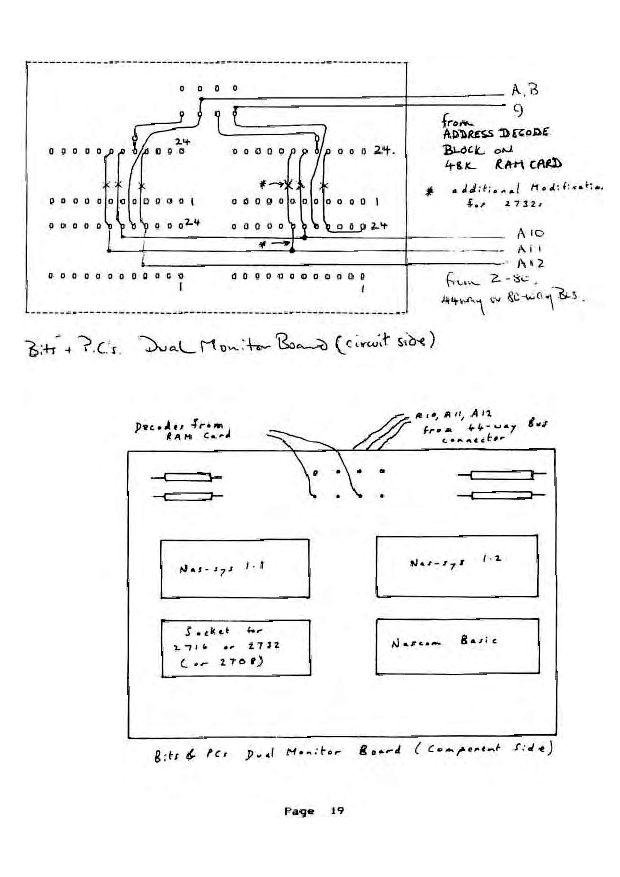 A, B
9
from
ADDRESS DECODE
BLOCK ON
48K RAM CARD
* additional Modification
for 2732s
24
24.
*→
1
1
24
24
*→
A10
A11
A12
from Z-80
44way or 80-way Bus.
1
1
Bits + P.C.'s. Dual Monitor Board (circuit side)
Decodes from
RAM Card
A10, A11, A12
from 44-way Bus
connector
Nas-sys 1.1
Nas-sys 1.2
Socket for
2716 or 2732
(or 2708)
Nascom Basic
Bits & PCs Dual Monitor Board (Component Side)
Page 19